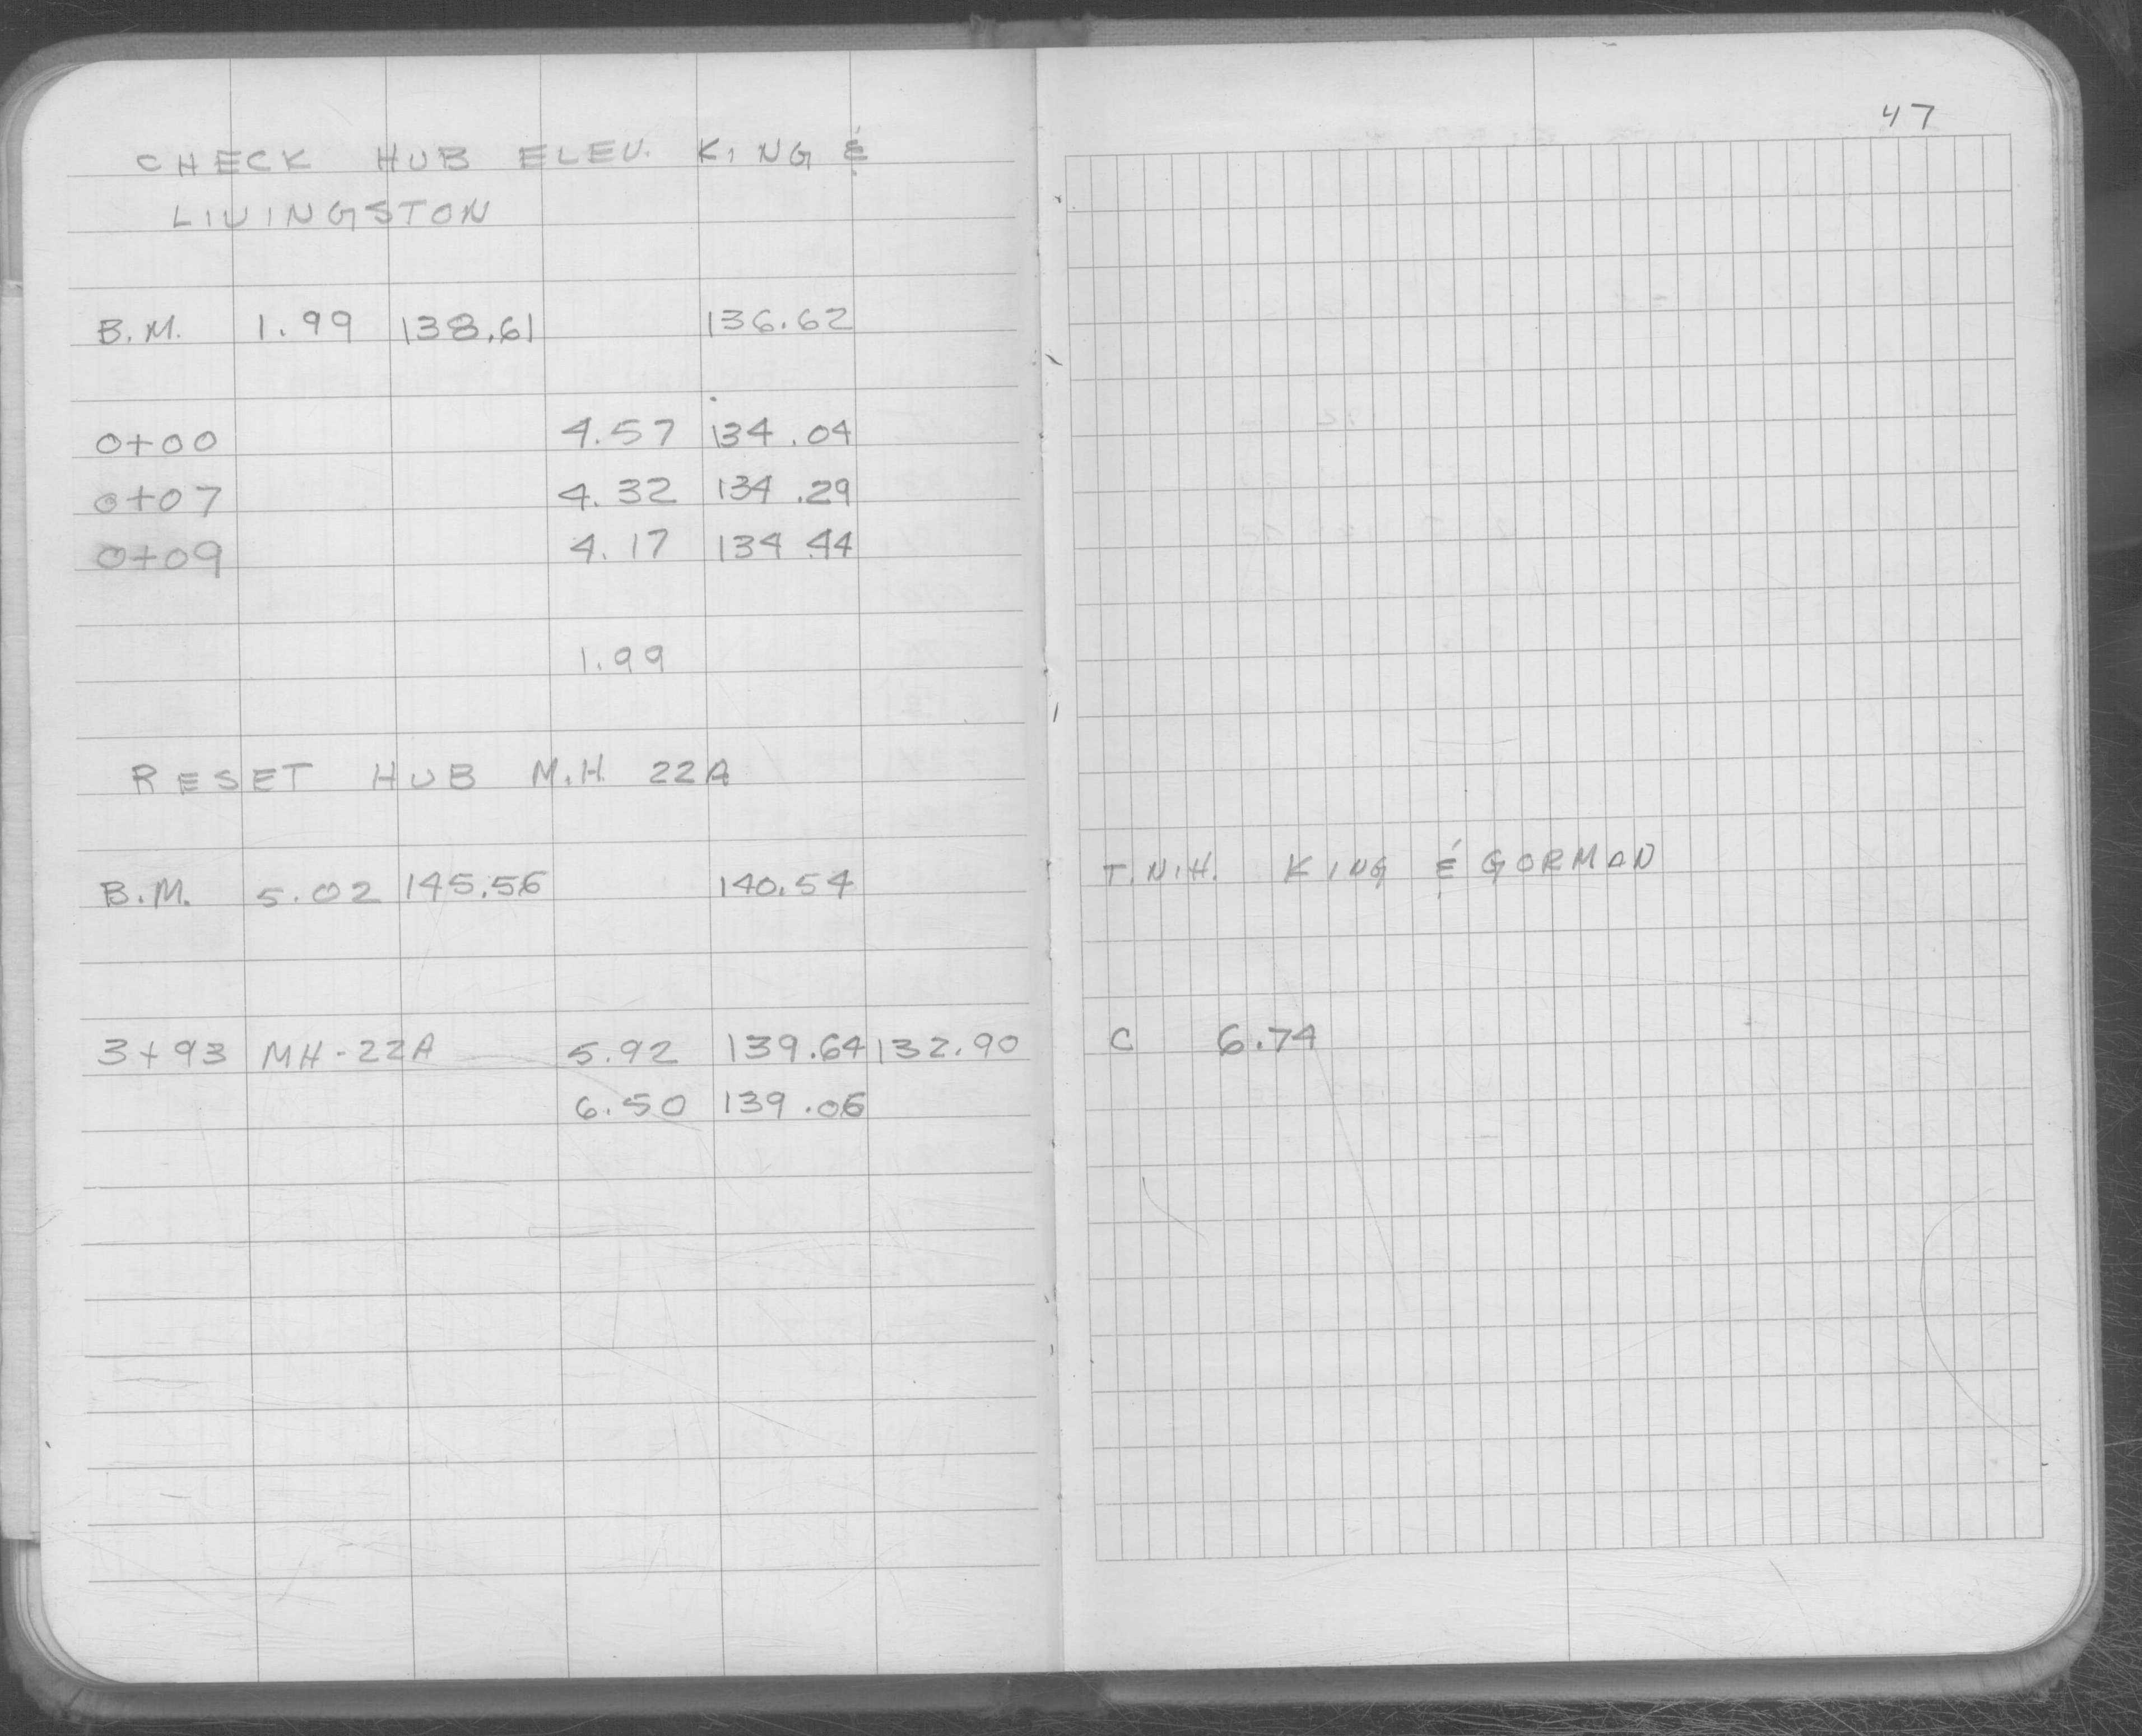 47
CHECK HUB ELEV. KING &
LIVINGSTON
B.M. 1.99 138.61 136.62
0+00 4.57 134.04
0+07 4.32 134.29
0+09 4.17 134.44
1.99
RESET HUB M.H. 22A
B.M. 5.02 145.56 140.54 T.N.H. KING & GORMAN
3+93 MH-22A 5.92 139.64 132.90 C 6.74
6.50 139.06